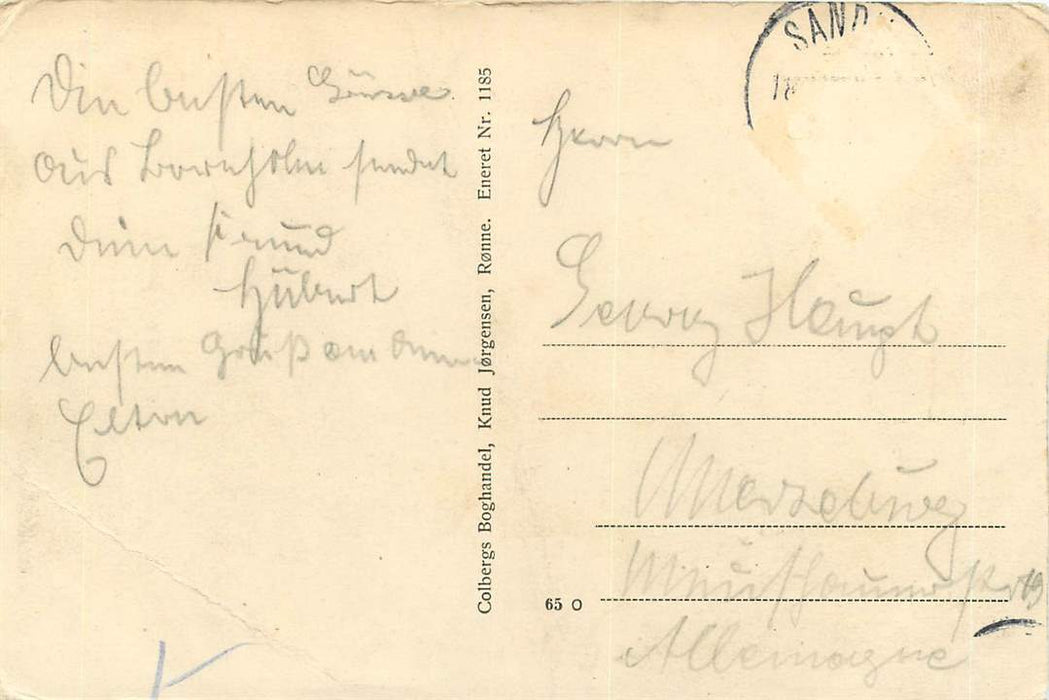 Die besten Grüsse
aus Bornholm sendet
Dein Freund
Hubert
besten Gruß an
Eltern
Colbergs Boghandel, Knud Jørgensen, Rønne. Eneret Nr. 1185
SAND
18
Herrn
Georg Haupt
Merseburg
19
Allemagne
65 O